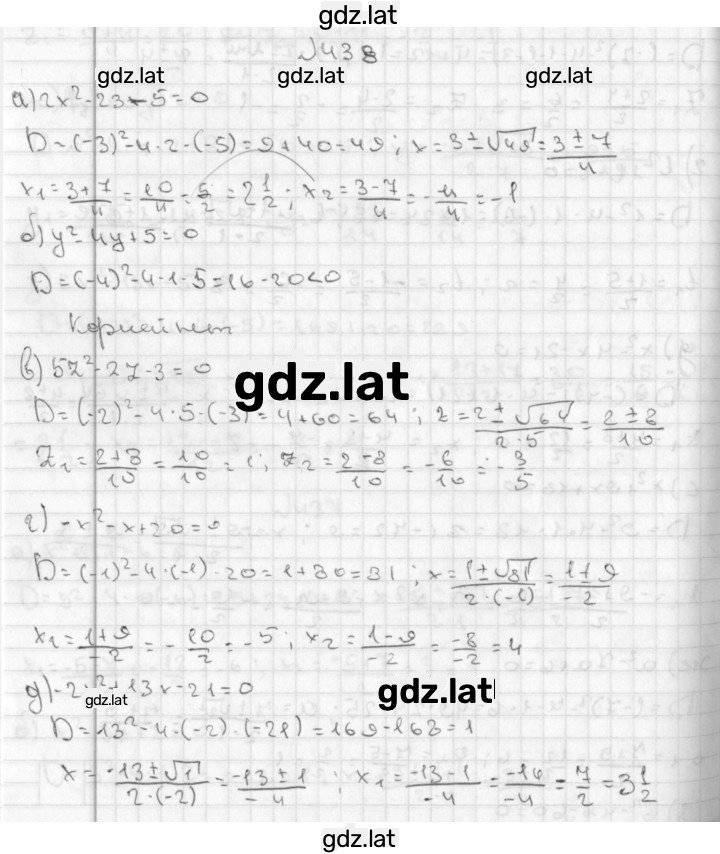 gdz.lat
№438
gdz.lat gdz.lat gdz.lat
а) 2x²-23x-5=0
D=(-3)²-4·2-(-5)=9+40=49; x=3±√49=(3±7)/4
x₁=(3+7)/4=10/4=5/2=2 1/2; x₂=(3-7)/4=-4/4=-1
б) y²-4y+5=0
D=(-4)²-4·1·5=16-20<0
Корней нет
в) 5z²-2z-3=0
gdz.lat
D=(-2)²-4·5·(-3)=4+60=64; z=(2±√64)/(2·5)=(2±8)/10
z₁=(2+8)/10=10/10=1; z₂=(2-8)/10=-6/10=-3/5
г) -x²-x+20=0
D=(-1)²-4·(-1)·20=1+80=81; x=(1±√81)/(2·(-1))=(1±9)/-2
x₁=(1+9)/-2=-10/2=-5; x₂=(1-9)/-2=-8/-2=4
д) -2x²+13x-21=0
gdz.lat gdz.lat
D=13²-4·(-2)·(-21)=169-168=1
x=(-13±√1)/(2·(-2))=(-13±1)/-4; x₁=(-13-1)/-4=-14/-4=7/2=3 1/2
gdz.lat